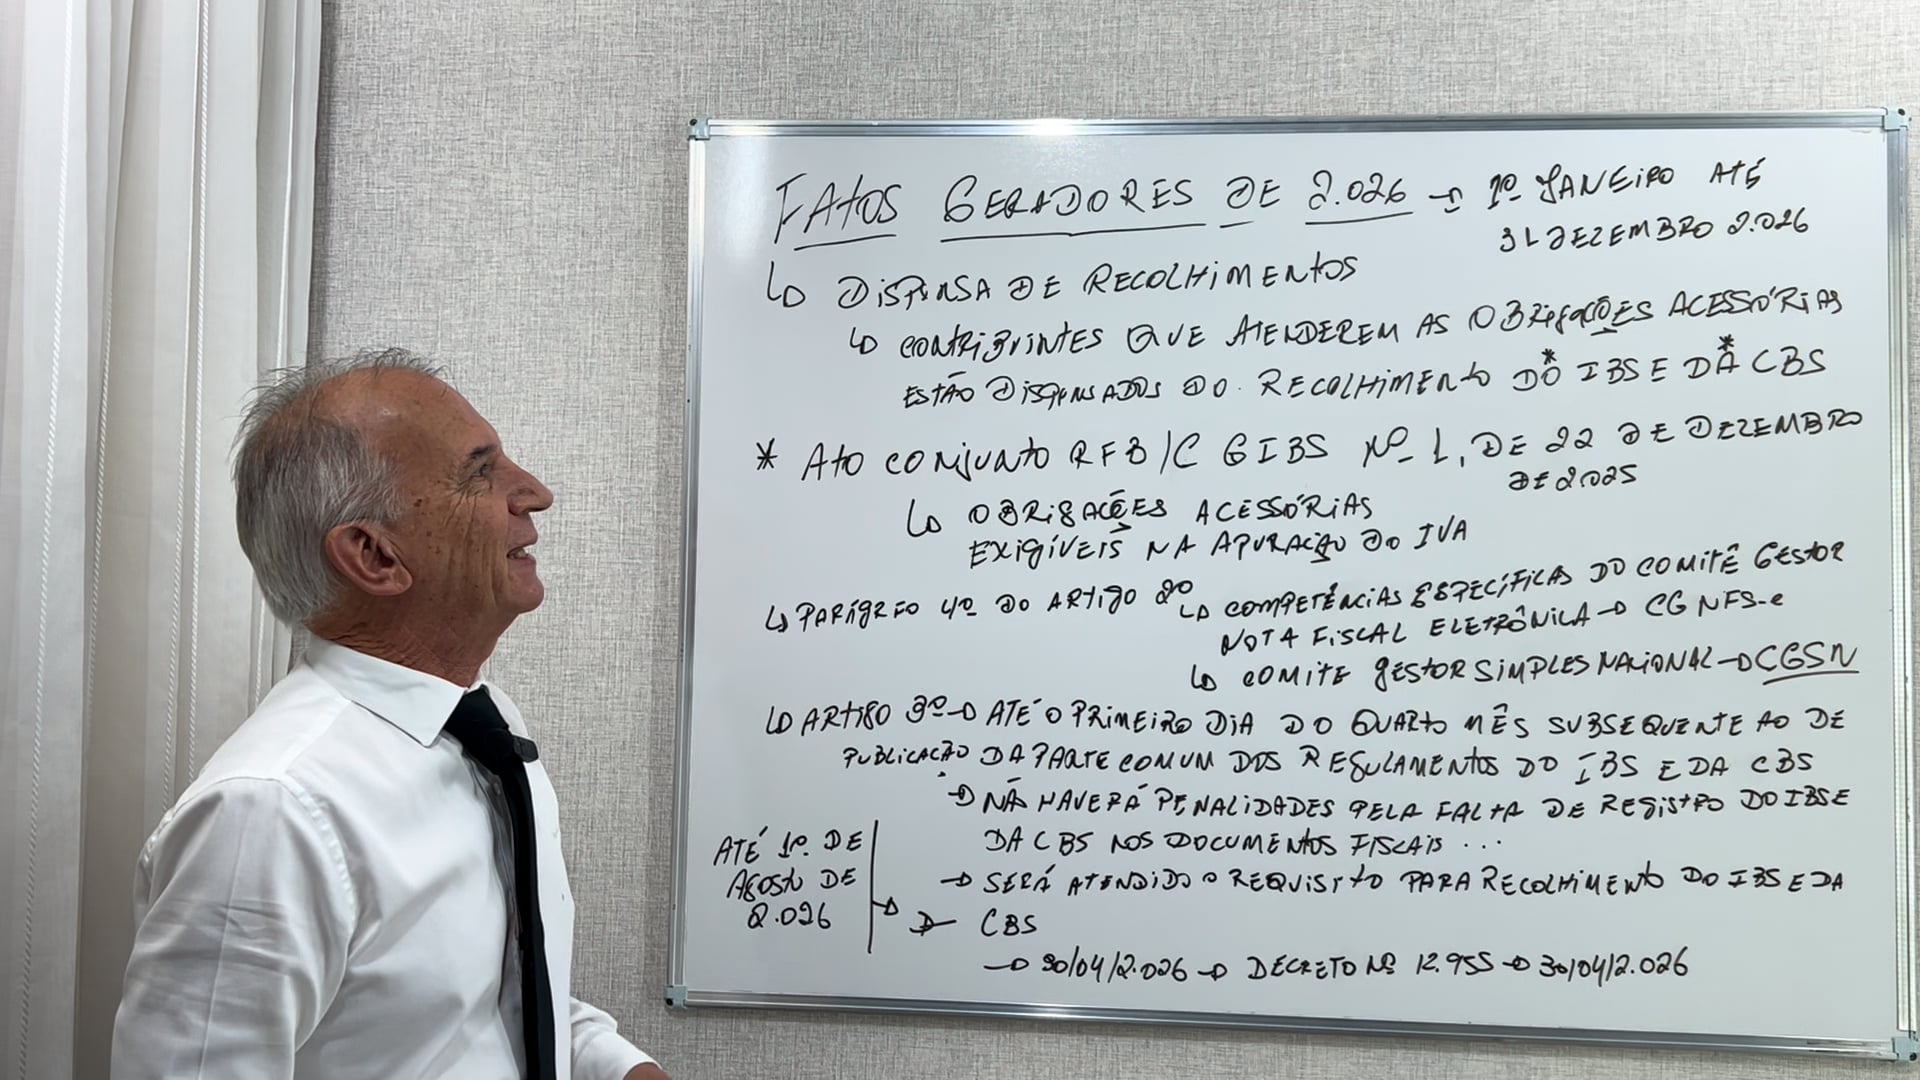 FATOS GERADORES DE 2.026 → 1º JANEIRO ATÉ
31 DEZEMBRO 2.026
↳ DISPENSA DE RECOLHIMENTOS
↳ CONTRIBUINTES QUE ATENDEREM AS OBRIGAÇÕES ACESSÓRIAS
ESTÃO DISPENSADOS DO RECOLHIMENTO DO* IBS E DA* CBS
* ATO CONJUNTO RFB/CGIBS Nº 1, DE 22 DE DEZEMBRO
DE 2025
↳ OBRIGAÇÕES ACESSÓRIAS
EXIGÍVEIS NA APURAÇÃO DO IVA
↳ PARÁGRFO 4º DO ARTIGO 2º
↳ COMPETÊNCIAS ESPECÍFICAS DO COMITÊ GESTOR
NOTA FISCAL ELETRÔNICA → CGNFS-e
↳ COMITE GESTOR SIMPLES NACIONAL → CGSN
↳ ARTIGO 3º → ATÉ O PRIMEIRO DIA DO QUARTO MÊS SUBSEQUENTE AO DE
PUBLICAÇÃO DA PARTE COMUM DOS REGULAMENTOS DO IBS E DA CBS
→ NÃO HAVERÁ PENALIDADES PELA FALTA DE REGISTRO DO IBS E
DA CBS NOS DOCUMENTOS FISCAIS ...
→ SERÁ ATENDIDO O REQUISITO PARA RECOLHIMENTO DO IBS E DA
→ CBS
ATÉ 1º DE
AGOSTO DE
2.026
→ 30/04/2.026 → DECRETO Nº 12.955 → 30/04/2.026